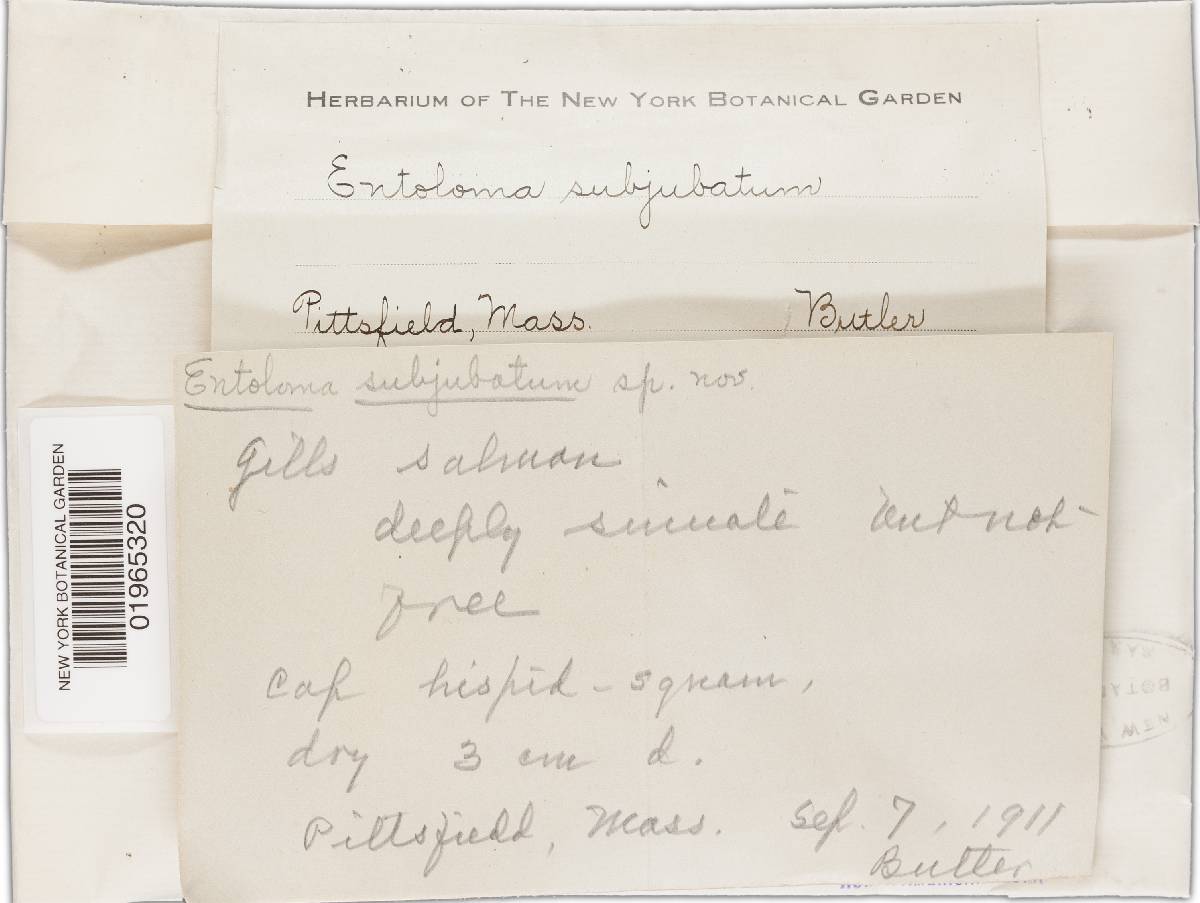 HERBARIUM OF THE NEW YORK BOTANICAL GARDEN
Entoloma subjubatum
Pittsfield, Mass. Butler
Entoloma subjubatum sp. nov.
Gills salmon
deeply sinuate but not
free
Cap hispid-squam,
dry 3 cm d.
Pittsfield, Mass. Sep. 7, 1911
Butler
NEW YORK BOTANICAL GARDEN
01965320